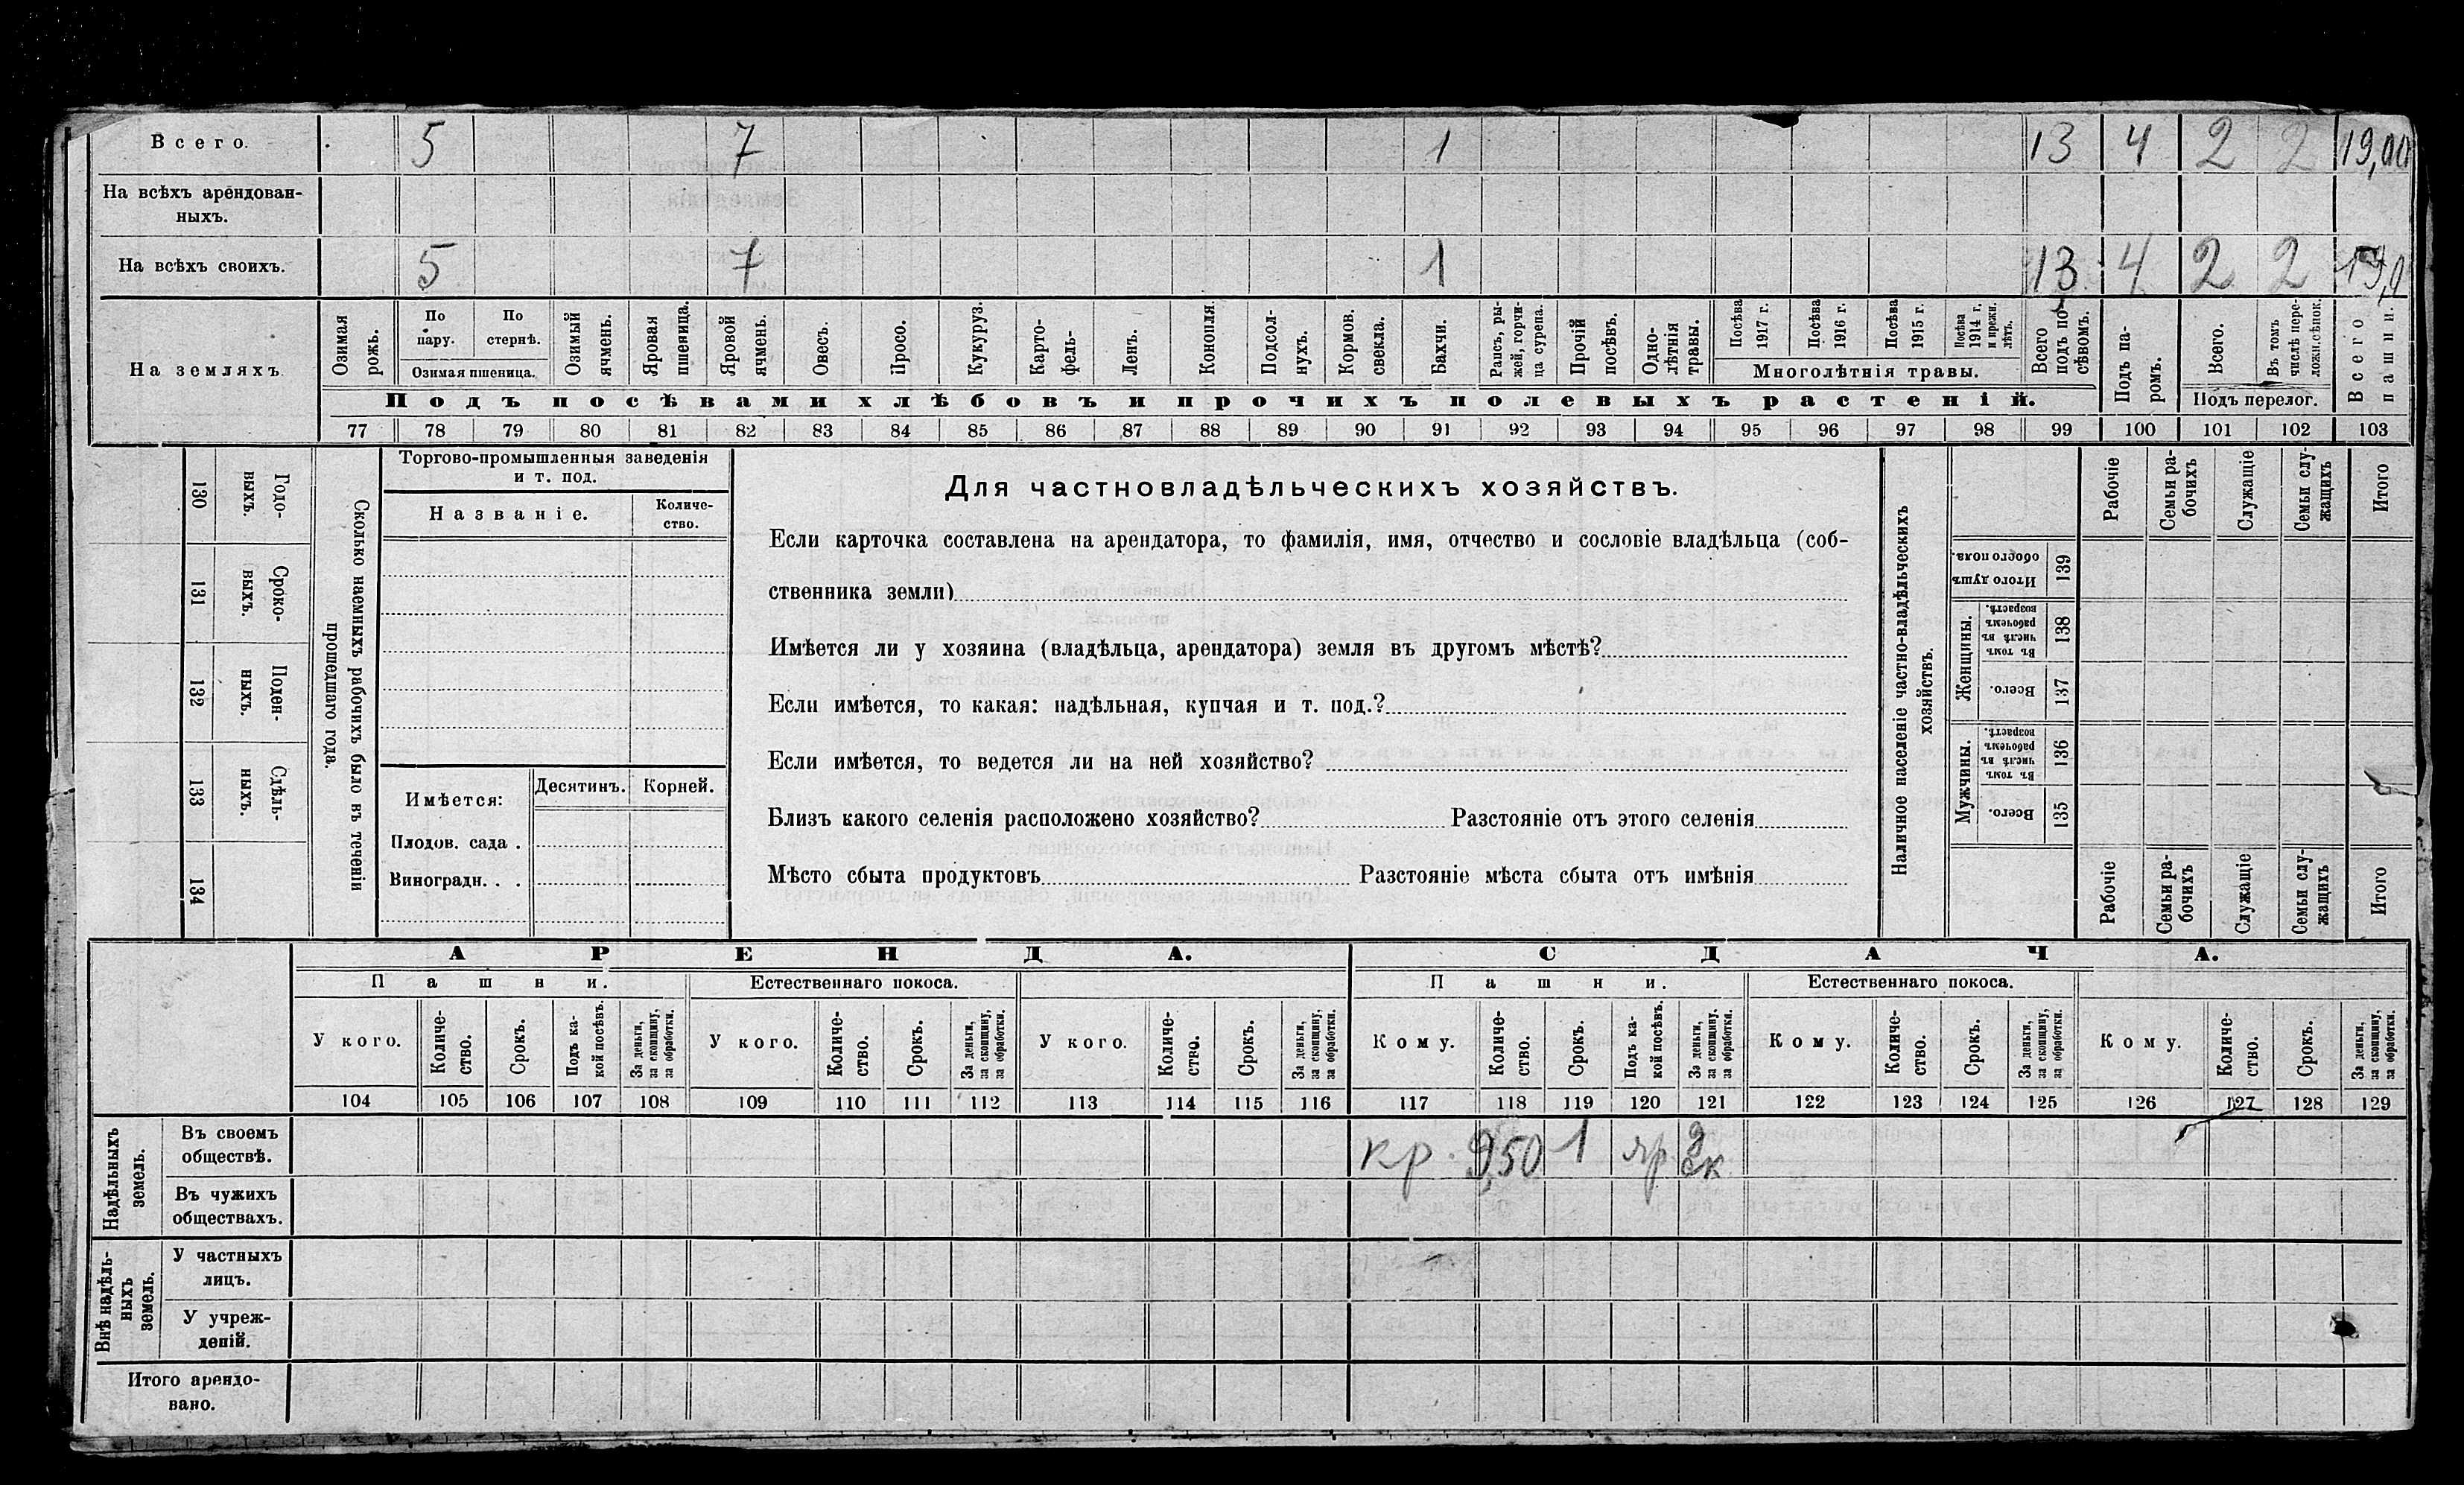 Всего. 5 7 1 13 4 2 2 19,00
На всѣхъ арендован-
ныхъ.
На всѣхъ своихъ. 5 7 1 13 4 2 2
На земляхъ.
Озимая рожь.
По пару.
По стернѣ.
Озимая пшеница.
Озимый ячмень.
Яровая пшеница.
Яровой ячмень.
Овесъ.
Просо.
Кукуруз.
Карто-
фель-
Ленъ.
Конопля.
Подсол-
нухъ.
Кормов. свекла.
Бахчи.
Рапсъ, ры-
жей, горчи-
ца сурепа.
Прочій посѣвъ.
Одно-
лѣтнія травы.
Посѣва 1917 г.
Посѣва 1916 г.
Посѣва 1915 г.
Посѣва 1914 г. и прежн. лѣтъ.
Многолѣтнія травы.
Всего подъ по-
сѣвомъ.
Подъ посѣвами хлѣбовъ и прочихъ полевыхъ растеній.
Подъ па-
ромъ.
Всего.
Въ томъ числѣ пере-
ложн. сѣнок.
Подъ перелог.
Всего пашни.
77 78 79 80 81 82 83 84 85 86 87 88 89 90 91 92 93 94 95 96 97 98 99 100 101 102 103
130 Годо-
выхъ.
131 Сроко-
выхъ.
132 Поден-
ныхъ.
133 Сдѣль-
ныхъ.
134
Сколько наемныхъ рабочихъ было въ теченіи
прошедшаго года.
Торгово-промышленныя заведенія
и т. под.
Названіе.
Количе-
ство.
Имѣется: Десятинъ. Корней.
Плодов. сада .
Виноградн. . .
Для частновладѣльческихъ хозяйствъ.
Если карточка составлена на арендатора, то фамилія, имя, отчество и сословіе владѣльца (соб-
ственника земли)
Имѣется ли у хозяина (владѣльца, арендатора) земля въ другомъ мѣстѣ?
Если имѣется, то какая: надѣльная, купчая и т. под.?
Если имѣется, то ведется ли на ней хозяйство?
Близъ какого селенія расположено хозяйство? Разстояніе отъ этого селенія
Мѣсто сбыта продуктовъ Разстояніе мѣста сбыта отъ имѣнія
Наличное населеніе частно-владѣльческихъ
хозяйствъ.
Рабочіе
Семьи ра-
бочихъ
Служащіе
Семьи слу-
жащихъ
Итого
Итого душъ обоего пола. 139
Женщины.
Въ томъ числѣ въ рабочемъ возрастѣ. 138
Всего. 137
Мужчины.
Въ томъ числѣ въ рабочемъ возрастѣ. 136
Всего. 135
Рабочіе
Семьи ра-
бочихъ
Служащіе
Семьи слу-
жащихъ
Итого
АРЕНДА. СДАЧА.
Пашни. Естественнаго покоса. Пашни. Естественнаго покоса.
У кого. Количе-
ство. Срокъ. Подъ ка-
кой посѣвъ. За деньги, за скопщину, за обработки.
У кого. Количе-
ство. Срокъ. За деньги, за скопщину, за обработки.
У кого. Количе-
ство. Срокъ. За деньги, за скопщину, за обработки.
Кому. Количе-
ство. Срокъ. Подъ ка-
кой посѣвъ. За деньги, за скопщину, за обработки.
Кому. Количе-
ство. Срокъ. За деньги, за скопщину, за обработки.
Кому. Количе-
ство. Срокъ. За деньги, за скопщину, за обработки.
104 105 106 107 108 109 110 111 112 113 114 115 116 117 118 119 120 121 122 123 124 125 126 127 128 129
Надѣльныхъ земель.
Въ своемъ
обществѣ. кр. 1 яр.
Въ чужихъ
обществахъ.
Внѣ надѣль-
ныхъ
земель.
У частныхъ
лицъ.
У учреж-
деній.
Итого арендо-
вано.